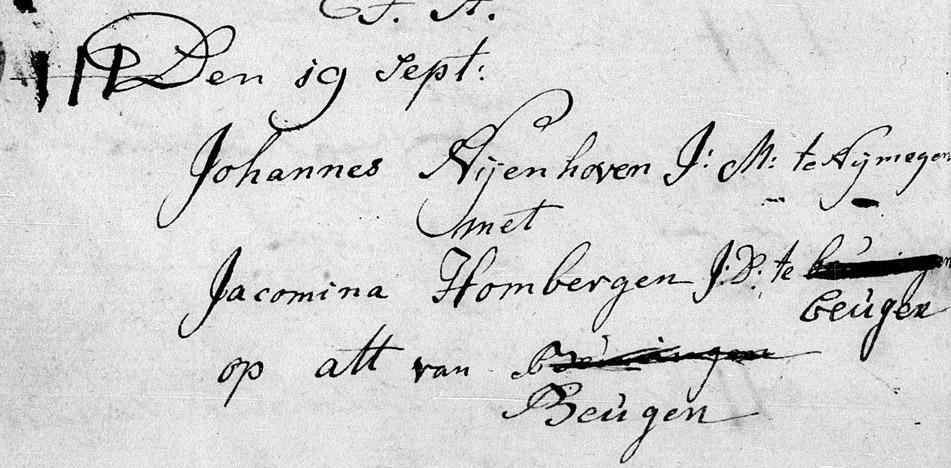 Den 19 Sept:
Johannes Nijenhoven J: M: te Nijmegen
met
Jacomina Hombergen J: D: te
beugen
op att van
Beugen